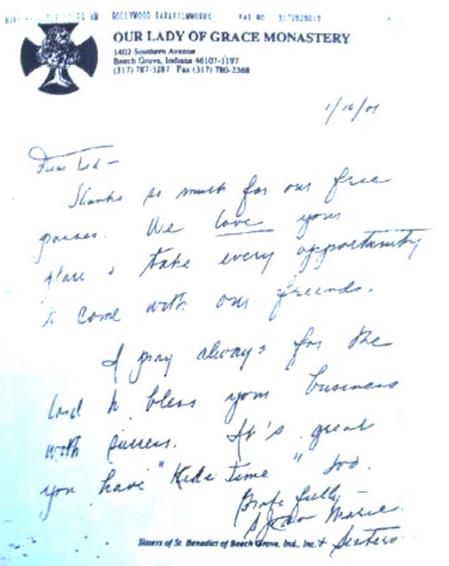 HOLLYWOOD BARAFILMWORKS FAX NO. 3172529017
OUR LADY OF GRACE MONASTERY
1402 Southern Avenue
Beech Grove, Indiana 46107-1197
(317) 787-3287 Fax (317) 780-2368
Dear Ted –
Thanks so much for our free
passes. We love your
place & take every opportunity
to come with our friends.
I pray always for the
Lord to bless your business
with success. It's great
you have "Kids Time" too.
Gratefully –
Marie
& Sisters
Sisters of St. Benedict of Beech Grove, Ind., Inc.